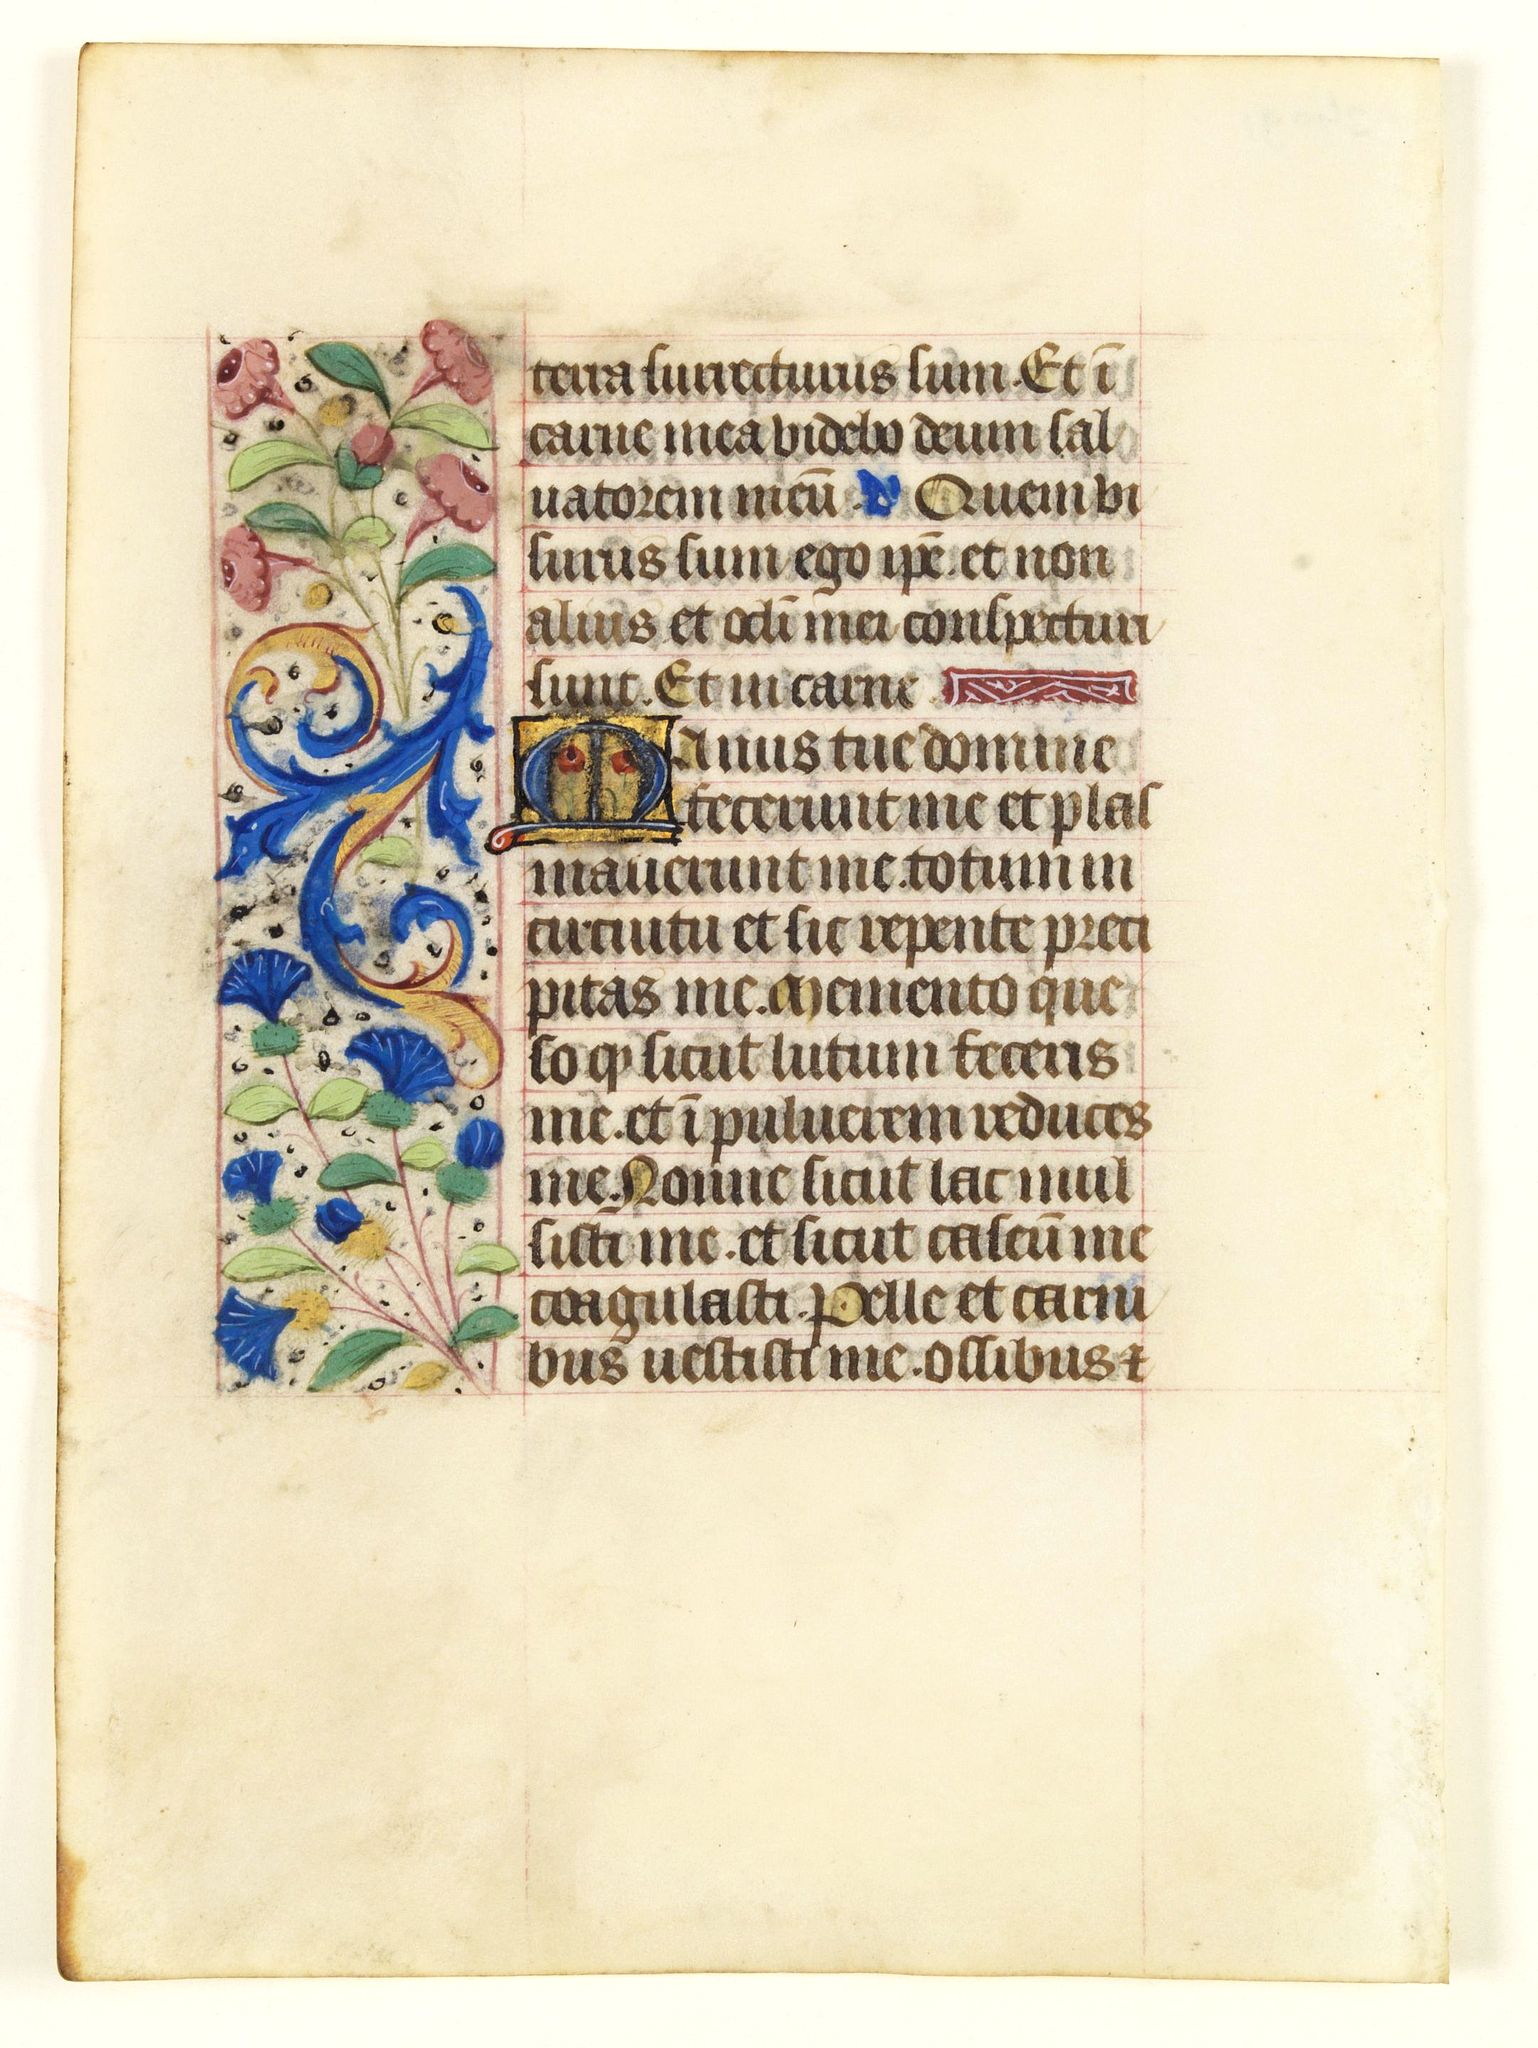 terra surrecturus sum. Et ī
carne mea videbo deum sal
uatorem meū. V Quem vi
surus sum ego ip̄e. et non
alius et ocl̄i mei conspecturi
sunt. Et in carne
Manus tue domine
fecerunt me et plas
mauerunt me. totum in
circuitu et sic repente preci
pitas me. Memento que
so ꝙ sicut lutum feceris
me. et ī puluerem reduces
me. Nonne sicut lac mul
sisti me. et sicut caseū me
coagulasti. Pelle et carni
bus uestisti me. ossibus ⁊